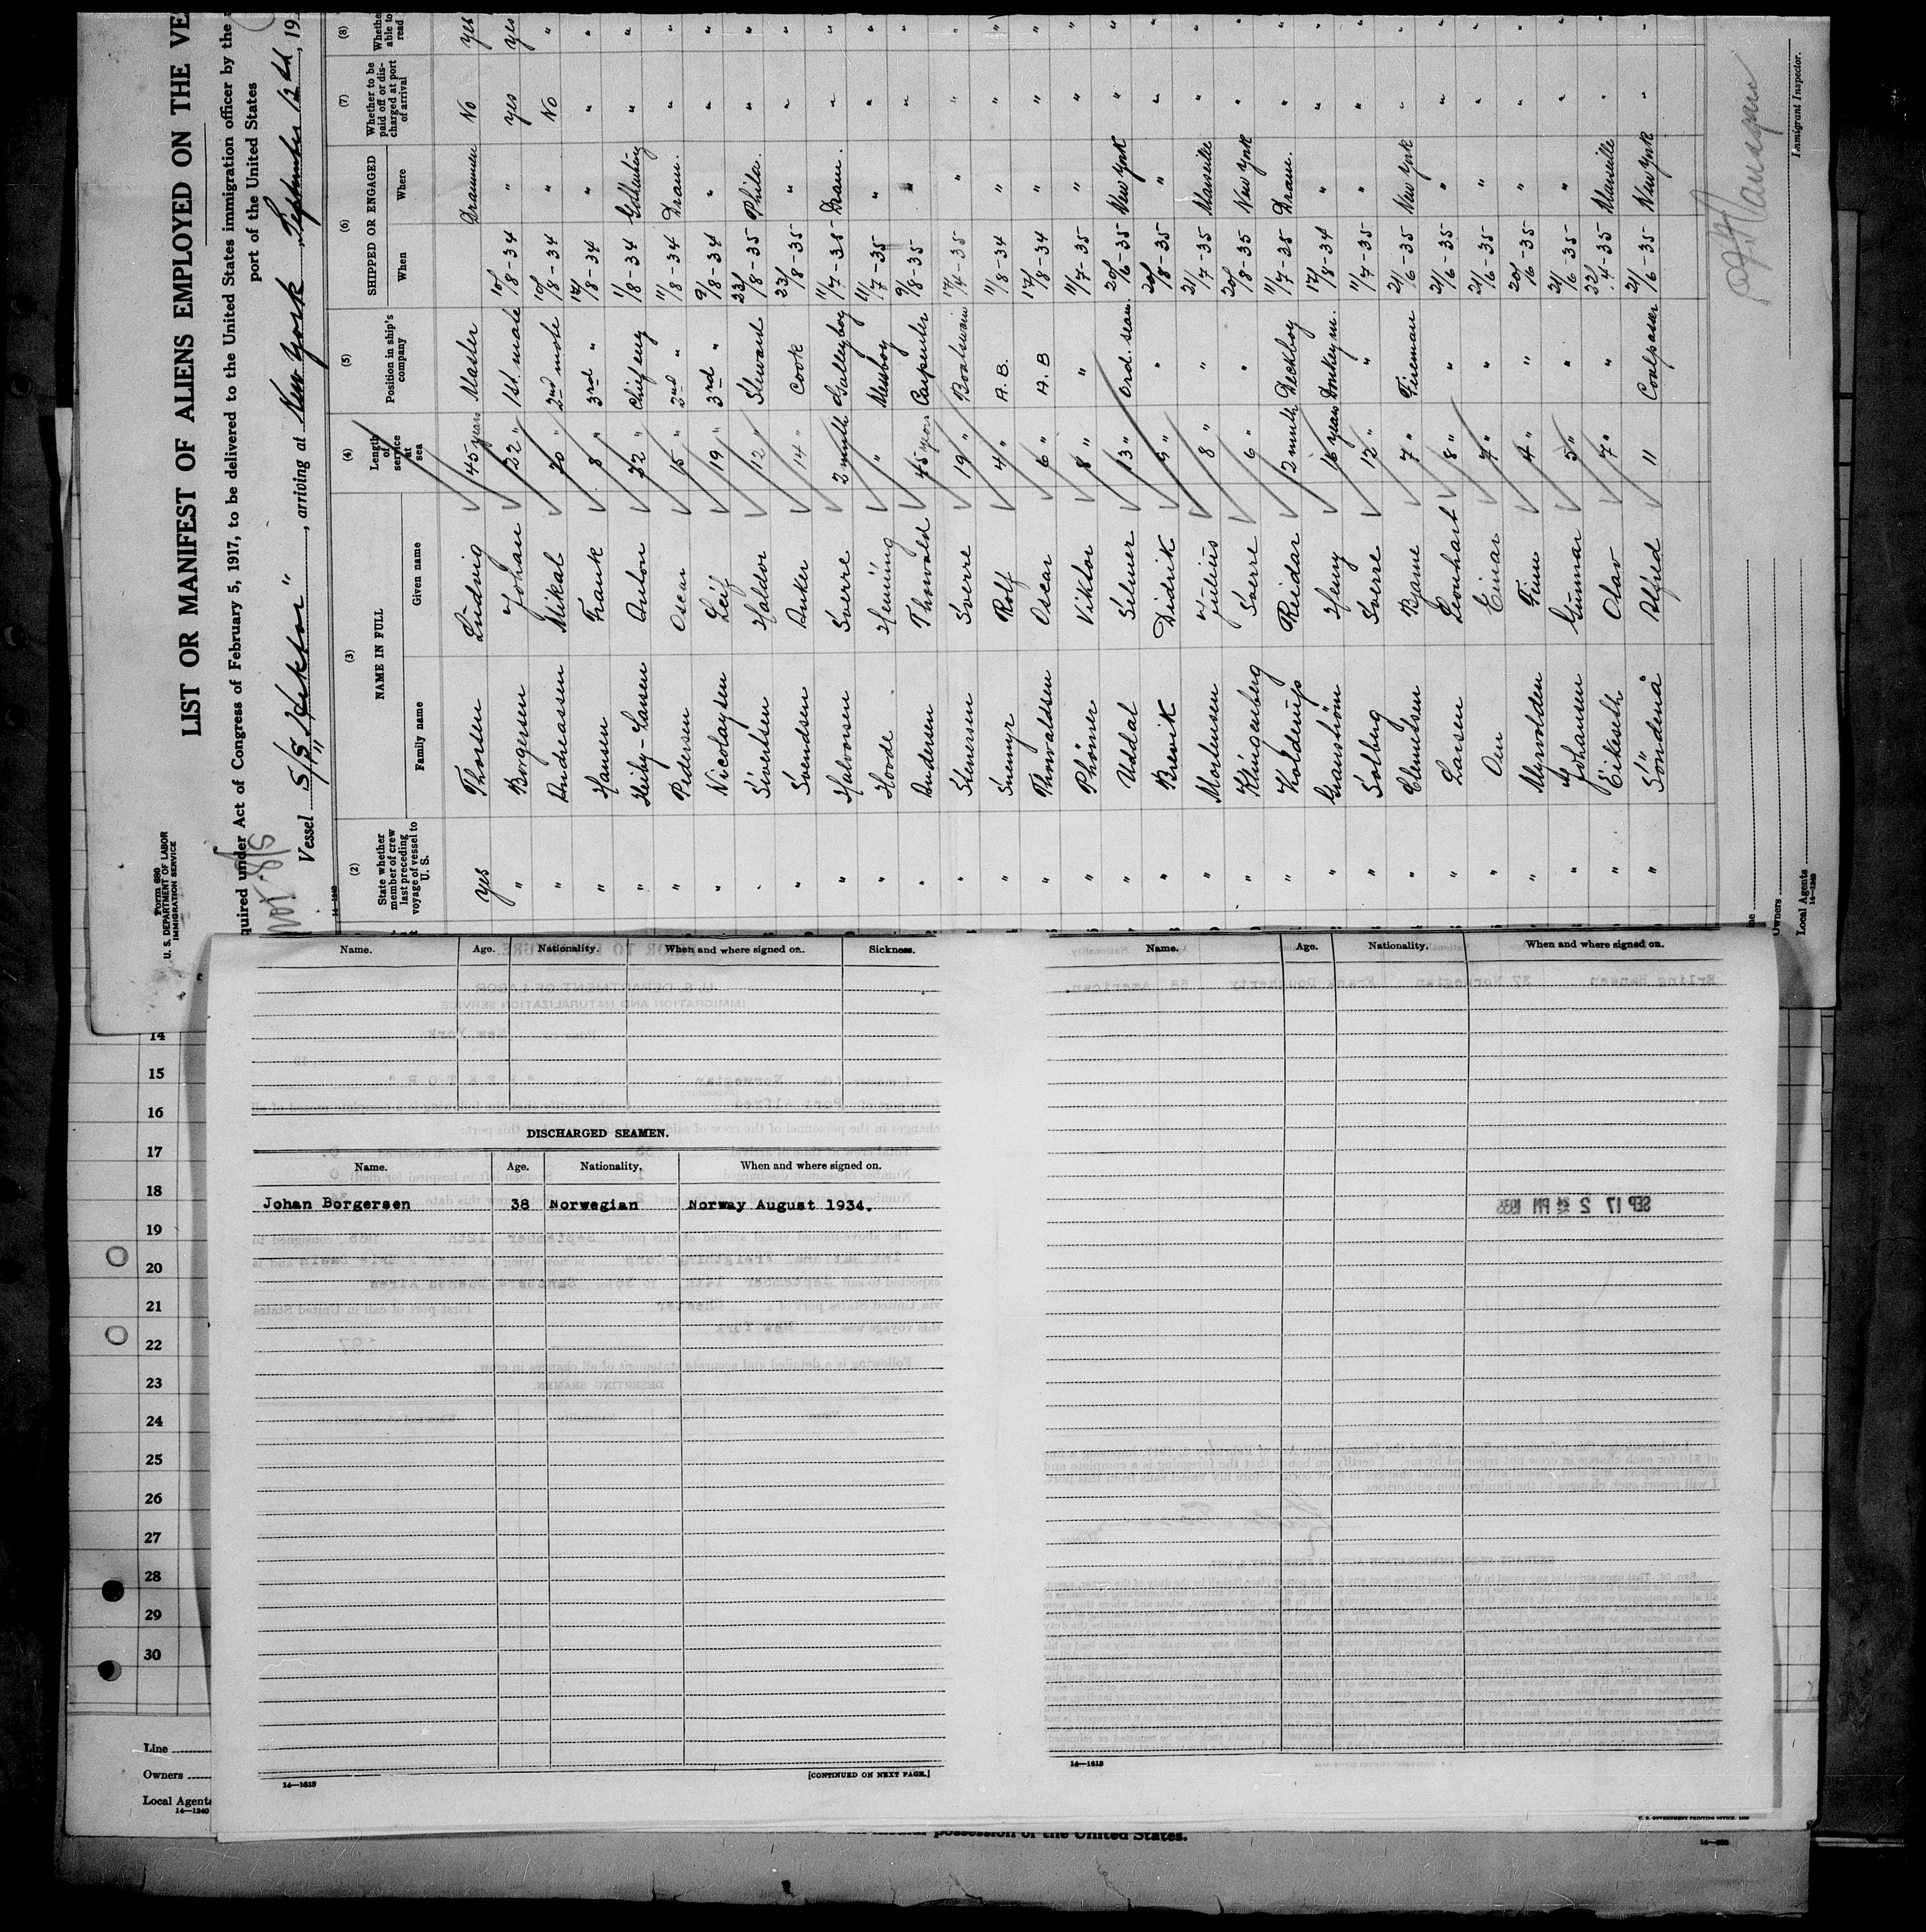 Form 680
U. S. DEPARTMENT OF LABOR
IMMIGRATION SERVICE
LIST OR MANIFEST OF ALIENS EMPLOYED ON THE VE
quired under Act of Congress of February 5, 1917, to be delivered to the United States immigration officer by the
port of the United States
Vessel S/S "Hektor", arriving at New York September 12th, 19
14-1240
(2) State whether member of crew last preceding voyage of vessel to U. S. (3) NAME IN FULL Family name Given name (4) Length of service at sea (5) Position in ship's company (6) SHIPPED OR ENGAGED When Where (7) Whether to be paid off or discharged at port of arrival (8) Whether able to read
yes Thorsen Ludvig 45 years Master Drammen No yes
" Borgersen Johan 22 " 1st mate 10/8-34 " yes yes
" Andreassen Mikal 20 " 2nd mate 10/8-34 " No "
" Hansen Frank 8 " 3rd " 14/8-34 " " "
" Heiby-Larsen Anton 32 " Chief eng 1/8-34 Gothenburg " "
" Pedersen Oscar 15 " 2nd " 11/8-34 Dram. " "
" Nicolaysen Leif 19 " 3rd " 9/8-34 " " "
" Sivertsen Haldor 12 " Steward 23/8-35 Phila. " "
" Svendsen Anker 14 " Cook 23/8-35 " " "
" Halvorsen Sverre 2 month Galleyboy 11/7-35 Dram. " "
" Hoode Henning " Messboy 11/7-35 " " "
" Andersen Thorvald 45 years Carpenter 9/8-35 " " "
" Stenersen Sverre 19 " Boatswain 17/4-35 " " "
" Snemyr Rolf 4 " A. B. 11/8-34 " " "
" Thorvaldsen Oscar 6 " A. B 17/8-34 " " "
" Phöner Viktor 8 " " 11/7-35 " " "
" Uddal Selmer 13 " Ord. seam. 20/6-35 New York " "
" Brevik Didrik 5 " " 20/8-35 " " "
" Mortensen Julius 8 " " 21/7-35 Marseille " "
" Klingenberg Sverre 6 " " 20/8-35 New York " "
" Kolderup Reidar 2 month Deckboy 11/7-35 Dram. " "
" Granström Henry 16 years Donkeym. 17/8-34 " " "
" Solberg Sverre 12 " " 11/7-35 " " "
" Clemetsen Bjarne 7 " Fireman 21/6-35 New York " "
" Larsen Leonhart 8 " " 21/6-35 " " "
" Oen Einar 7 " " 21/6-35 " " "
" Myrvolden Finn 4 " " 20/6-35 " " "
" Johansen Gunnar 5 " " 21/6-35 " " "
" Eikeseth Olav 7 " " 22/4-35 Marseille " "
" Söndenå Alfred 11 Coalpasser 21/6-35 New York " "
Immigrant Inspector.
ne
Owners
Local Agents
14-1240
Name. Age. Nationality. When and where signed on. Sickness.
DISCHARGED SEAMEN.
Name. Age. Nationality. When and where signed on.
Johan Borgersen 38 Norwegian Norway August 1934.
14—1613
[CONTINUED ON NEXT PAGE.]
Name. Age. Nationality. When and where signed on.
SEP 17 2 24 PM 1935
14—1613
14
15
16
17
18
19
20
21
22
23
24
25
26
27
28
29
30
Line
Owners
Local Agents
14—1240
possession of the United States.